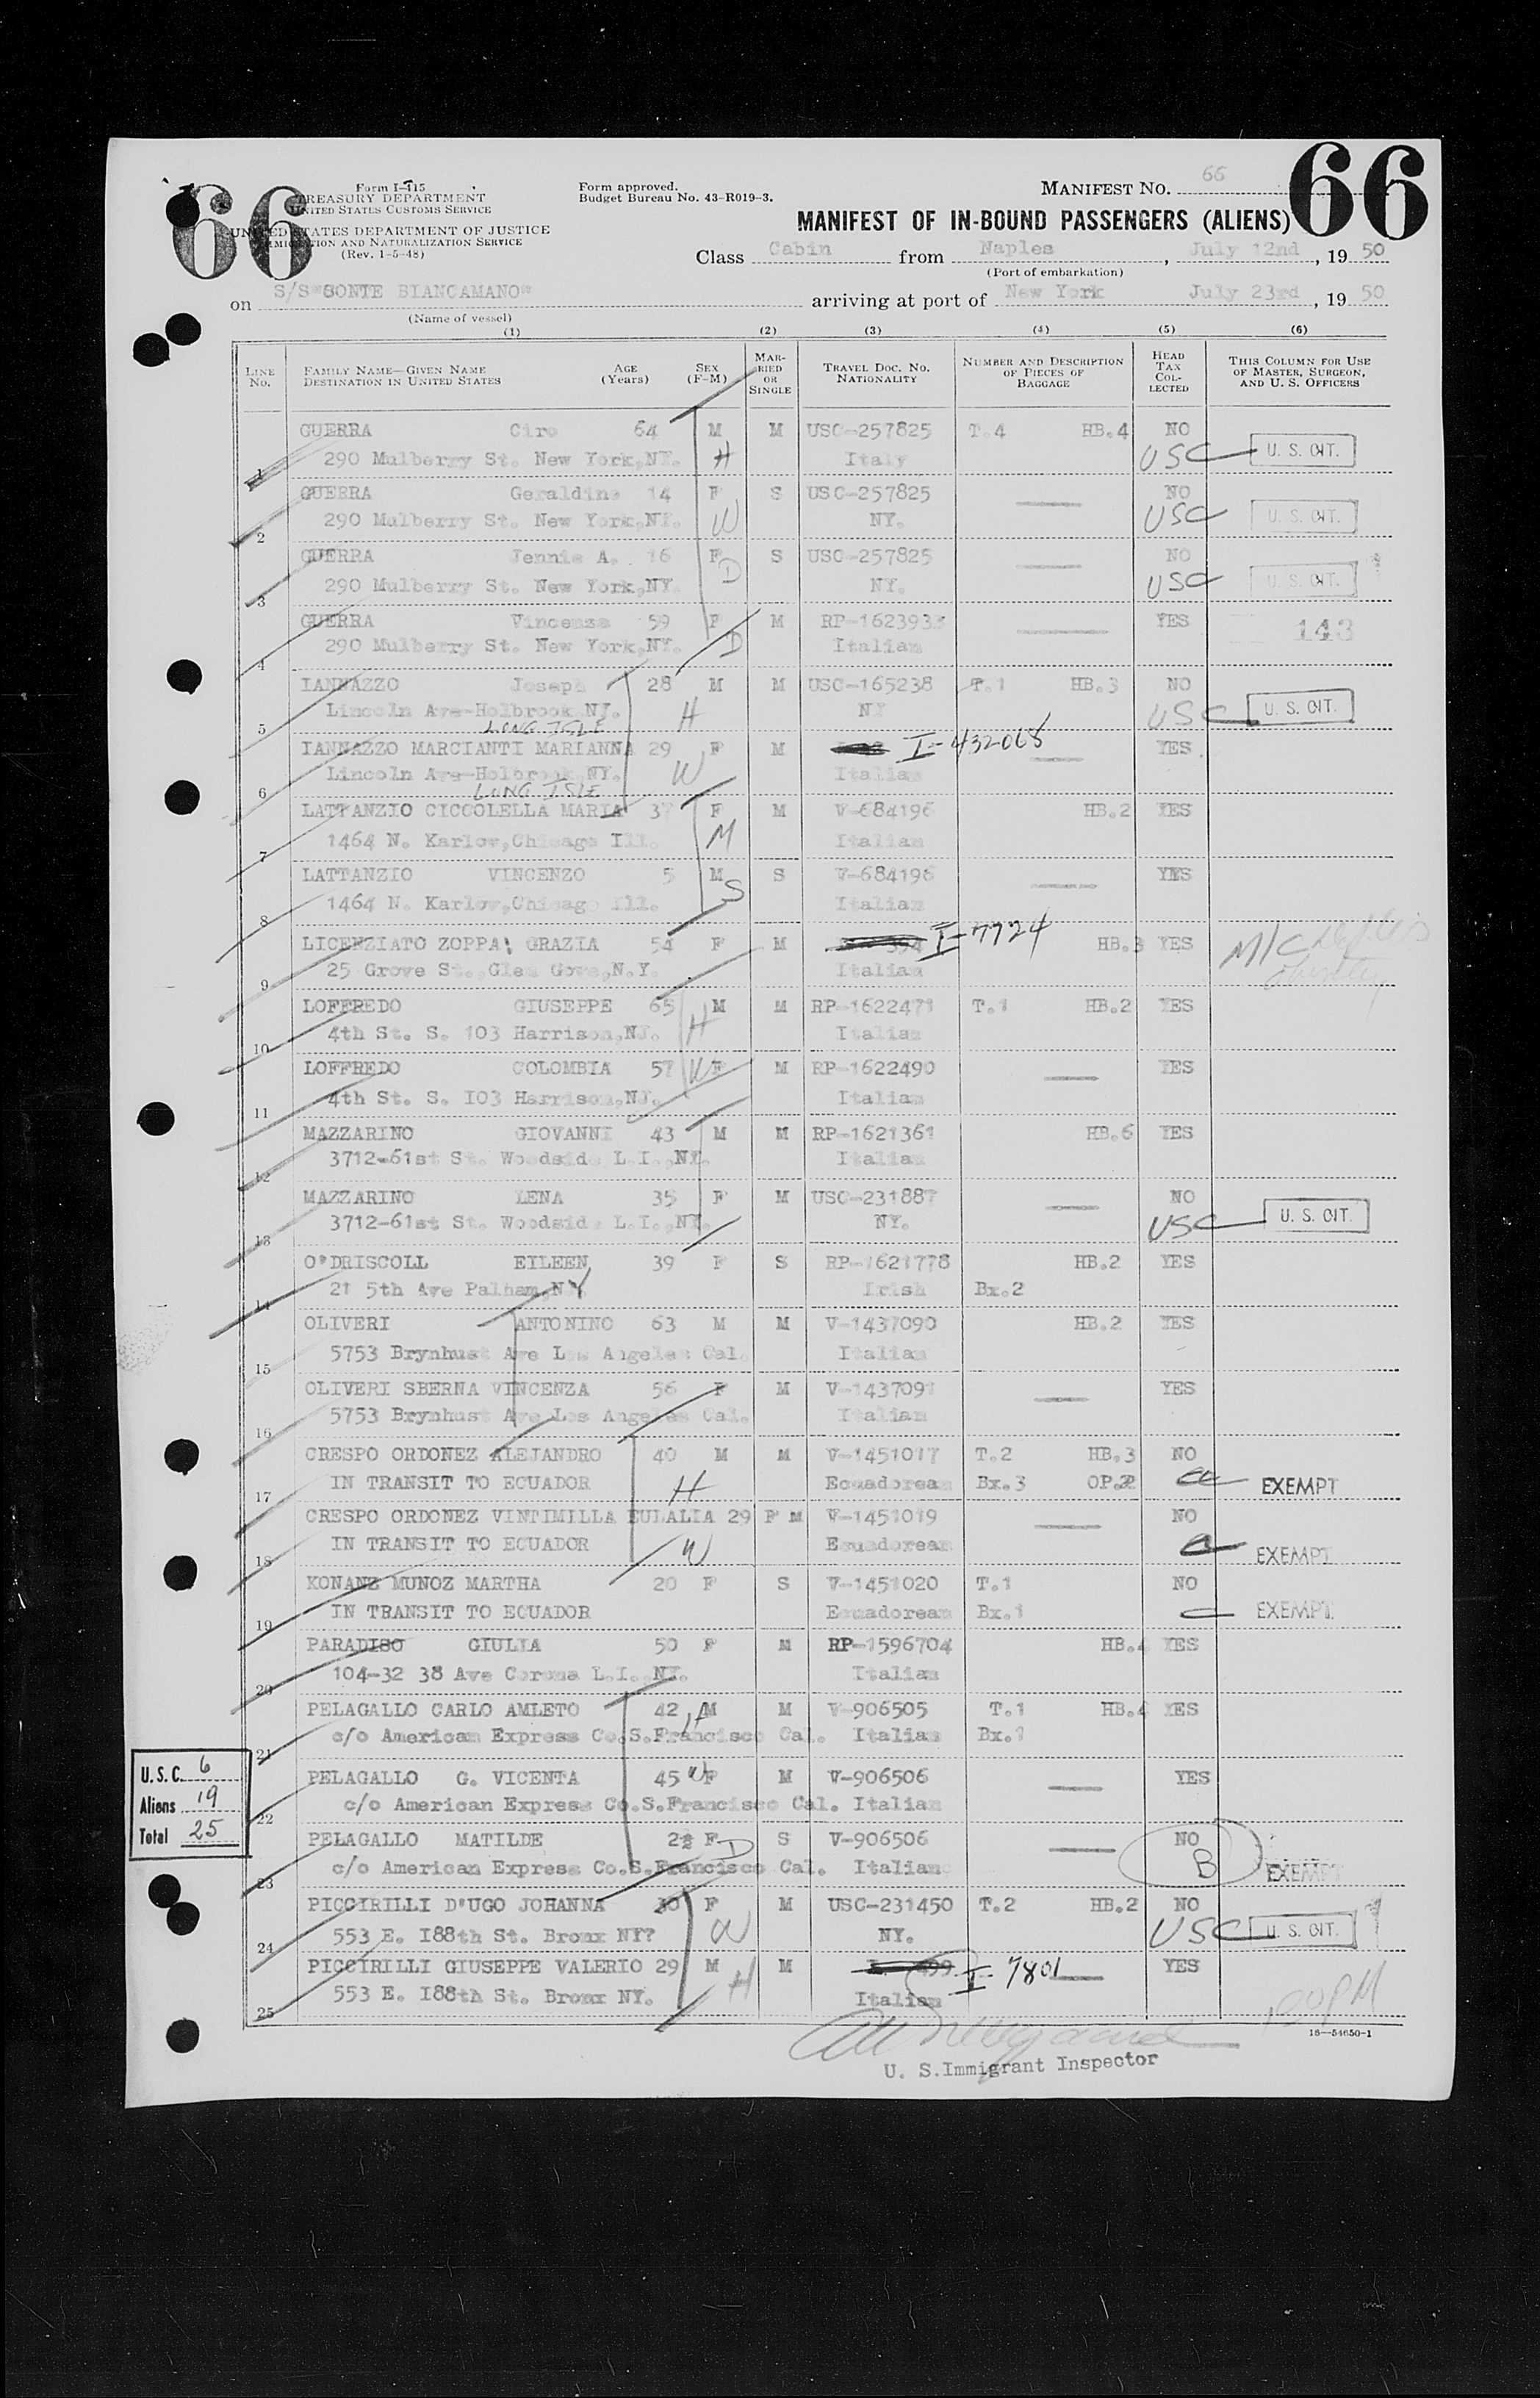 66
66
Form I-415
TREASURY DEPARTMENT
UNITED STATES CUSTOMS SERVICE
UNITED STATES DEPARTMENT OF JUSTICE
IMMIGRATION AND NATURALIZATION SERVICE
(Rev. 1-5-48)
Form approved.
Budget Bureau No. 43-R019-3.
MANIFEST NO. 66
MANIFEST OF IN-BOUND PASSENGERS (ALIENS)
Class Cabin from Naples, July 12nd, 19 50
(Port of embarkation)
on S/S"CONTE BIANCAMANO" arriving at port of New York July 23rd, 19 50
(Name of vessel)
(1) (2) (3) (4) (5) (6)
LINE No. FAMILY NAME—GIVEN NAME DESTINATION IN UNITED STATES AGE (Years) SEX (F-M) MARRIED OR SINGLE TRAVEL DOC. NO. NATIONALITY NUMBER AND DESCRIPTION OF PIECES OF BAGGAGE HEAD TAX COLLECTED THIS COLUMN FOR USE OF MASTER, SURGEON, AND U. S. OFFICERS
GUERRA Ciro 64 M M USC-257825 T.4 HB.4 NO
1 290 Mulberry St. New York,NY. H Italy USC U. S. CIT.
GUERRA Geraldine 14 F S USC-257825 NO
2 290 Mulberry St. New York,NY. W NY. USC U. S. CIT.
GUERRA Jennie A. 16 F S USC-257825 NO
3 290 Mulberry St. New York,NY. D NY. USC U. S. CIT.
GUERRA Vincenza 59 F M RP-1623933 YES
4 290 Mulberry St. New York,NY. D Italian 143
IANNAZZO Joseph 28 M M USC-165238 T.1 HB.3 NO
5 Lincoln Ave-Holbrook NJ. H NY USC U. S. CIT.
LONG ISLE
IANNAZZO MARCIANTI MARIANNA 29 F M I-432068 YES
6 Lincoln Ave-Holbrook NY. W Italian
LONG ISLE
LATTANZIO CICCOLELLA MARIA 37 F M V-684196 HB.2 YES
7 1464 N. Karlov,Chicago Ill. M Italian
LATTANZIO VINCENZO 5 M S V-684196 YES
8 1464 N. Karlov,Chicago Ill. S Italian
LICENZIATO ZOPPA: GRAZIA 54 F M I-7724 HB.3 YES
9 25 Grove St.,Glen Gove,N.Y. Italian M/C
LOFFREDO GIUSEPPE 65 M M RP-1622471 T.1 HB.2 YES
10 4th St. S. 103 Harrison,NJ. H Italian
LOFFREDO COLOMBIA 57 W F M RP-1622490 YES
11 4th St. S. I03 Harrison,NJ. Italian
MAZZARINO GIOVANNI 43 M M RP-1621361 HB.6 YES
12 3712-61st St. Woodside L.I.,NY. Italian
MAZZARINO LENA 35 F M USC-231887 NO
13 3712-61st St. Woodside L.I.,NY. NY. USC U. S. CIT.
O'DRISCOLL EILEEN 39 F S RP-1621778 HB.2 YES
14 21 5th Ave Palham,NY Irish Bx.2
OLIVERI ANTONINO 63 M M V-1437090 HB.2 YES
15 5753 Brynhust Ave Los Angeles Cal. Italian
OLIVERI SBERNA VINCENZA 56 F M V-1437091 YES
16 5753 Brynhust Ave Los Angeles Cal. Italian
CRESPO ORDONEZ ALEJANDRO 40 M M V-1451017 T.2 HB.3 NO
17 IN TRANSIT TO ECUADOR H Ecuadorean Bx.3 OP.2 EXEMPT
CRESPO ORDONEZ VINTIMILLA EULALIA 29 F M V-1451019 NO
18 IN TRANSIT TO ECUADOR W Ecuadorean EXEMPT
KONANZ MUNOZ MARTHA 20 F S V-1451020 T.1 NO
19 IN TRANSIT TO ECUADOR Ecuadorean Bx.1 EXEMPT
PARADISO GIULIA 50 F M RP-1596704 HB.4 YES
20 104-32 38 Ave Corona L.I. NY. Italian
PELAGALLO CARLO AMLETO 42 H M M V-906505 T.1 HB.4 YES
21 c/o American Express Co.S.Francisco Cal. Italian Bx.1
PELAGALLO G. VICENTA 45 W F M V-906506 YES
22 c/o American Express Co.S.Francisco Cal. Italian
PELAGALLO MATILDE F S V-906506 NO
23 c/o American Express Co.S.Francisco Cal. D Italian B EXEMPT
PICCIRILLI D'UGO JOHANNA 30 F M USC-231450 T.2 HB.2 NO
24 553 E. I88th St. Bronx NY? W NY. USC U. S. CIT.
PICCIRILLI GIUSEPPE VALERIO 29 M M I-7801 YES
25 553 E. I88th St. Bronx NY. H Italian
U.S.C. 6
Aliens 19
Total 25
16—54650-1
U. S. Immigrant Inspector